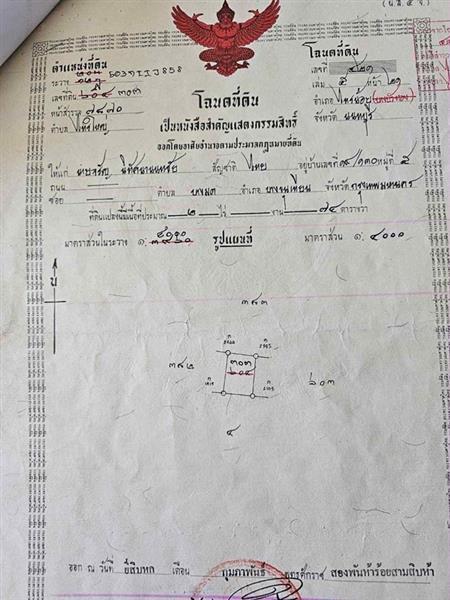 (น.ส. ๔ จ.)
ตำแหน่งที่ดิน
โฉนดที่ดิน
ระวาง 5037 I I J 858
เลขที่ ๕๒๑
เลขที่ดิน ๖๐๔ ๓๐๓
โฉนดที่ดิน
เล่ม ๕ หน้า ๒๑
หน้าสำรวจ ๗๔๗๐
อำเภอ ไทรน้อย
ตำบล ไทรใหญ่
เป็นหนังสือสำคัญแสดงกรรมสิทธิ์
จังหวัด นนทบุรี
ออกโดยอาศัยอำนาจตามประมวลกฎหมายที่ดิน
ให้แก่ สัญชาติ ไทย อยู่บ้านเลขที่ ๙/๑๓๐ หมู่ที่ ๕
ถนน ตำบล บางมด อำเภอ บางขุนเทียน จังหวัด กรุงเทพมหานคร
ซอย
ที่ดินแปลงนี้มีเนื้อที่ประมาณ ๒ ไร่ งาน ๗๔ ตารางวา
มาตราส่วนในระวาง ๑: ๔๐๐๐
รูปแผนที่
มาตราส่วน ๑: ๔๐๐๐
น
๓๘๓
๓๐๓
๖๐๔
๓๘๒
๖๐๓
ออก ณ วันที่ ยี่สิบหก เดือน กุมภาพันธ์ พุทธศักราช สองพันห้าร้อยสามสิบห้า